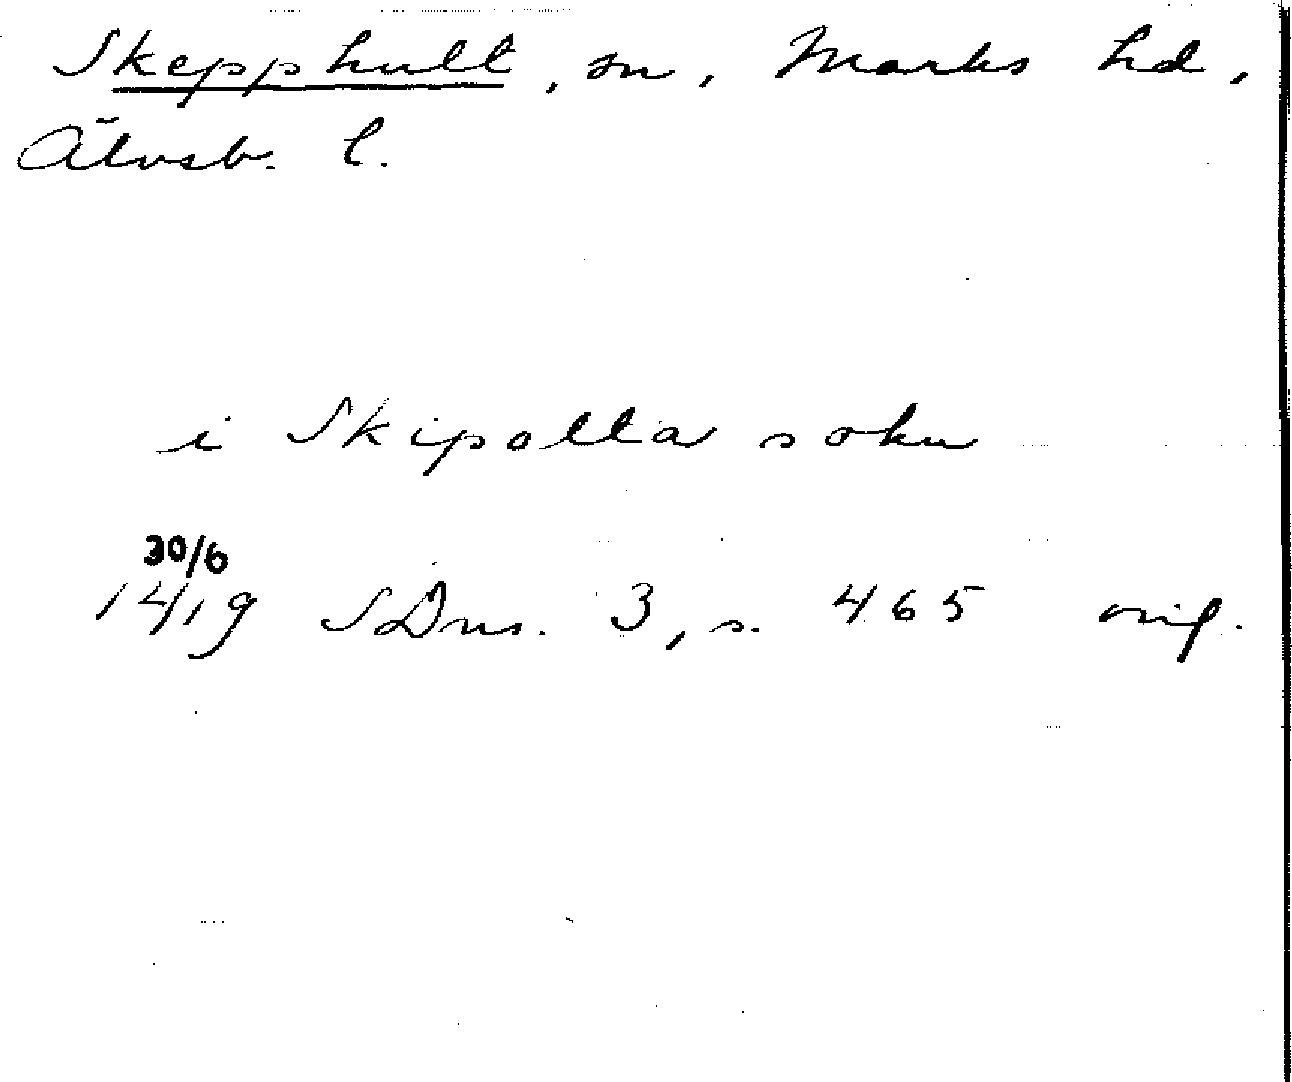 Skepphult, sn, Marks hd,
Älvsb. l.
i Skipolta sokn
30/6
1419 SDns. 3, s. 465 orig.